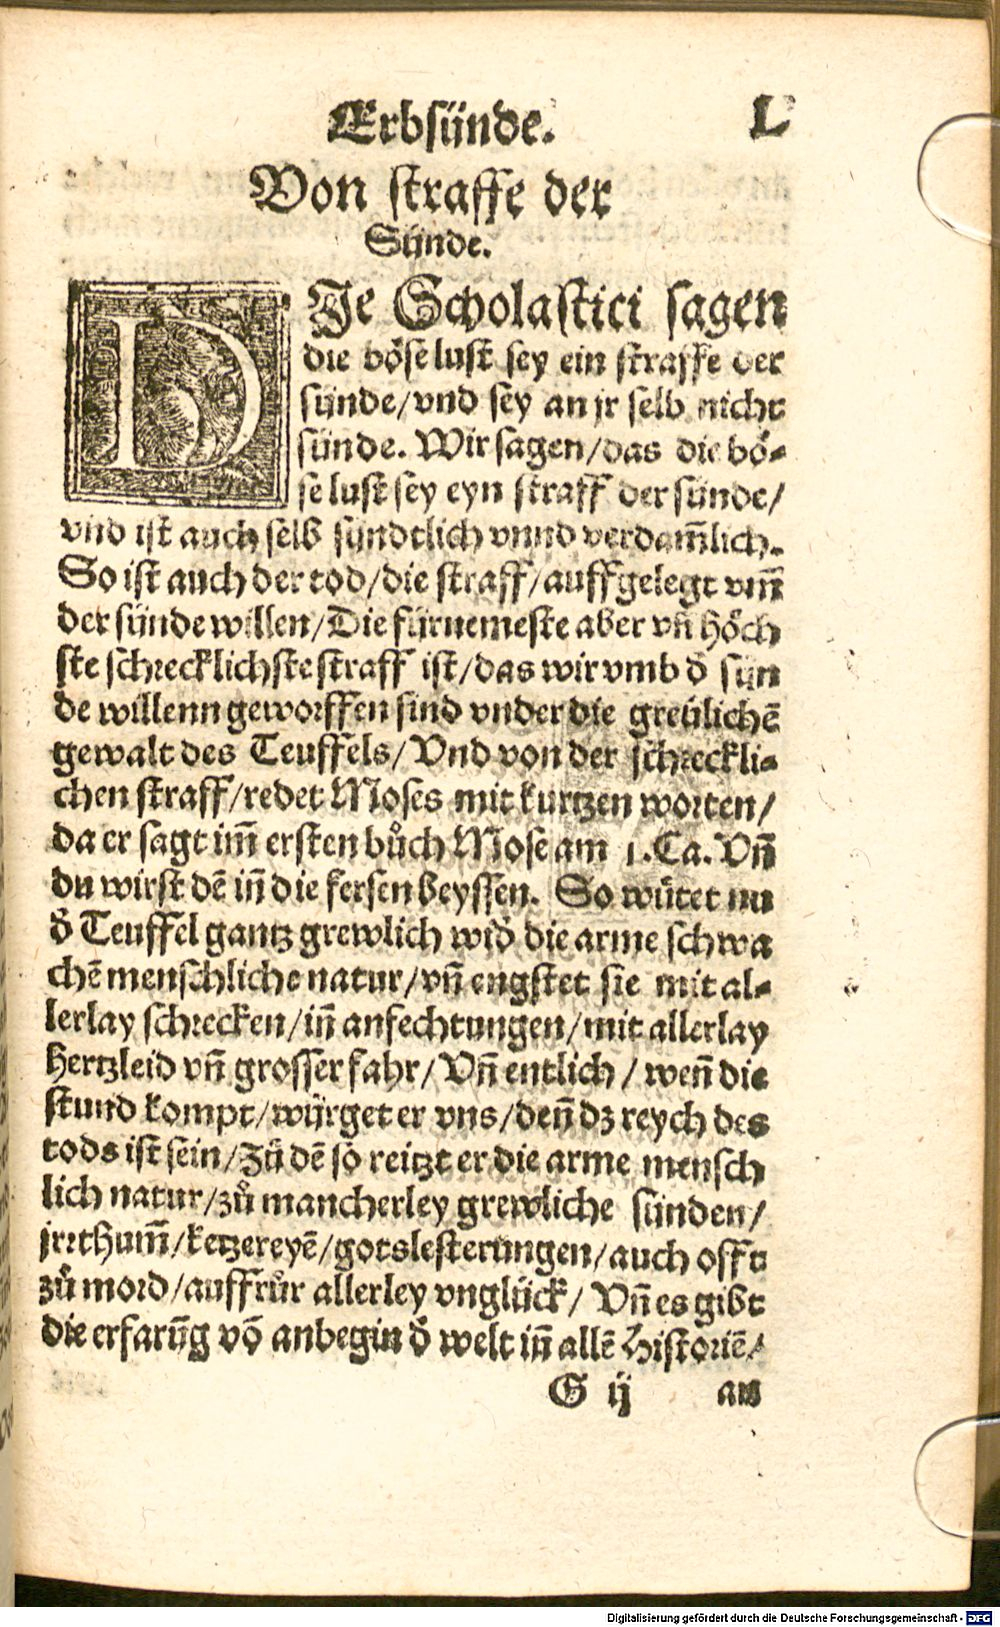 Erbsünde. L
Von straffe der
Sünde.
DJe Scholastici sagen
die böse lust sey ein straffe der
sünde/vnd sey an jr selb nicht
sünde. Wir sagen/das die bö-
se lust sey eyn straff der sünde/
vnd ist auch selb sündtlich vnnd verdam̃lich.
So ist auch der tod/die straff/auffgelegt vm̃
der sünde willen/Die fürnemeste aber vñ höch
ste schrecklichste straff ist/das wir vmb d̕ sün
de willenn geworffen sind vnder die greülichẽ
gewalt des Teuffels/Vnd von der schreckli-
chen straff/redet Moses mit kurtzen worten/
da er sagt im̃ ersten bůch Mose am 1.Ca. Vñ
du wirst dẽ iñ die fersen beyssen. So wütet nu
d̕ Teuffel gantz grewlich wid̕ die arme schwa
chẽ menschliche natur/vñ engstet sie mit al-
lerlay schrecken/iñ anfechtungen/mit allerlay
hertzleid vñ grosser fahr/Vñ entlich/weñ die
stund kompt/würget er vns/deñ dz reych des
tods ist sein/Zů dẽ so reitzt er die arme mensch
lich natur/zů mancherley grewliche sünden/
jrrthum̃/ketzereyẽ/gotslesterungen/auch offt
zů mord/auffrůr allerley vnglück/Vñ es gibt
die erfarũg võ anbegin d̕ welt iñ allẽ Historiẽ/
G ij aus
Digitalisierung gefördert durch die Deutsche Forschungsgemeinschaft - DFG